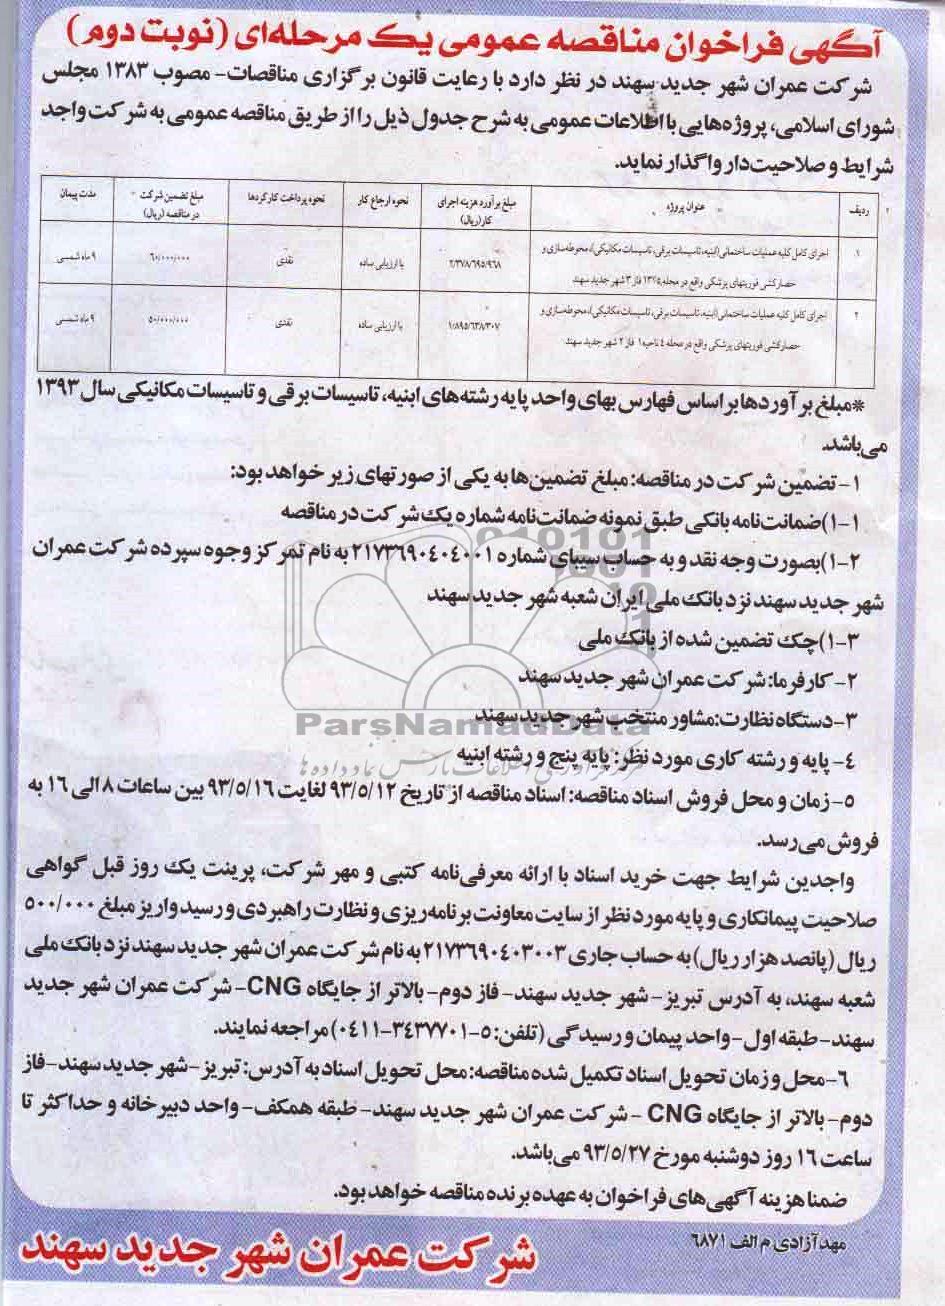 آگهی فراخوان مناقصه عمومی یک مرحله‌ای (نوبت دوم)
شرکت عمران شهر جدید سهند در نظر دارد با رعایت قانون برگزاری مناقصات- مصوب ۱۳۸۳ مجلس
شورای اسلامی، پروژه‌هایی با اطلاعات عمومی به شرح جدول ذیل را از طریق مناقصه عمومی به شرکت واجد
شرایط و صلاحیت‌دار واگذار نماید.
ردیف عنوان پروژه مبلغ برآورد هزینه اجرای کار(ریال) نحوه ارجاع کار نحوه پرداخت کارکردها مبلغ تضمین شرکت در مناقصه (ریال) مدت پیمان
۱ اجرای کامل کلیه عملیات ساختمانی(ابنیه، تاسیسات برقی، تاسیسات مکانیکی)، محوطه‌سازی و
حصارکشی فوریتهای پزشکی واقع در محله ۱۳/۵ فاز ۳ شهر جدید سهند ۲/۳۷۸/۶۹۵/۹۶۸ با ارزیابی ساده نقدی ۶۰/۰۰۰/۰۰۰ ۹ ماه شمسی
۲ اجرای کامل کلیه عملیات ساختمانی(ابنیه، تاسیسات برقی، تاسیسات مکانیکی)، محوطه‌سازی و
حصارکشی فوریتهای پزشکی واقع در محله ۴ ناحیه ۱ فاز ۲ شهر جدید سهند ۱/۸۹۵/۶۳۸/۳۰۷ با ارزیابی ساده نقدی ۵۰/۰۰۰/۰۰۰ ۹ ماه شمسی
*مبلغ برآوردها بر اساس فهارس بهای واحد پایه رشته‌های ابنیه، تاسیسات برقی و تاسیسات مکانیکی سال ۱۳۹۳
می‌باشد.
۱- تضمین شرکت در مناقصه: مبلغ تضمین‌ها به یکی از صورتهای زیر خواهد بود:
۱-۱)ضمانت‌نامه بانکی طبق نمونه ضمانت‌نامه شماره یک شرکت در مناقصه
۱-۲)بصورت وجه نقد و به حساب سیبای شماره ۲۱۷۳۶۹۰۴۰۴۰۰۱ به نام تمرکز وجوه سپرده شرکت عمران
شهر جدید سهند نزد بانک ملی ایران شعبه شهر جدید سهند
۱-۳)چک تضمین شده از بانک ملی
۲- کارفرما: شرکت عمران شهر جدید سهند
۳-دستگاه نظارت:مشاور منتخب شهر جدید سهند
ParsNamadData
۴- پایه و رشته کاری مورد نظر: پایه پنج و رشته ابنیه
۵- زمان و محل فروش اسناد مناقصه: اسناد مناقصه از تاریخ ۹۳/۵/۱۲ لغایت ۹۳/۵/۱۶ بین ساعات ۸ الی ۱۶ به
فروش می‌رسد.
واجدین شرایط جهت خرید اسناد با ارائه معرفی‌نامه کتبی و مهر شرکت، پرینت یک روز قبل گواهی
صلاحیت پیمانکاری و پایه مورد نظر از سایت معاونت برنامه‌ریزی و نظارت راهبردی و رسید واریز مبلغ ۵۰۰/۰۰۰
ریال (پانصد هزار ریال) به حساب جاری ۲۱۷۳۶۹۰۴۰۳۰۰۳ به نام شرکت عمران شهر جدید سهند نزد بانک ملی
شعبه سهند، به آدرس تبریز- شهر جدید سهند- فاز دوم- بالاتر از جایگاه CNG- شرکت عمران شهر جدید
سهند- طبقه اول- واحد پیمان و رسیدگی (تلفن: ۵-۳۴۳۷۷۰۱-۰۴۱۱) مراجعه نمایند.
۶- محل و زمان تحویل اسناد تکمیل شده مناقصه: محل تحویل اسناد به آدرس: تبریز- شهر جدید سهند- فاز
دوم- بالاتر از جایگاه CNG - شرکت عمران شهر جدید سهند- طبقه همکف- واحد دبیرخانه و حداکثر تا
ساعت ۱۶ روز دوشنبه مورخ ۹۳/۵/۲۷ می‌باشد.
ضمنا هزینه آگهی‌های فراخوان به عهده برنده مناقصه خواهد بود.
مهد آزادی م الف ۶۸۷۱
شرکت عمران شهر جدید سهند